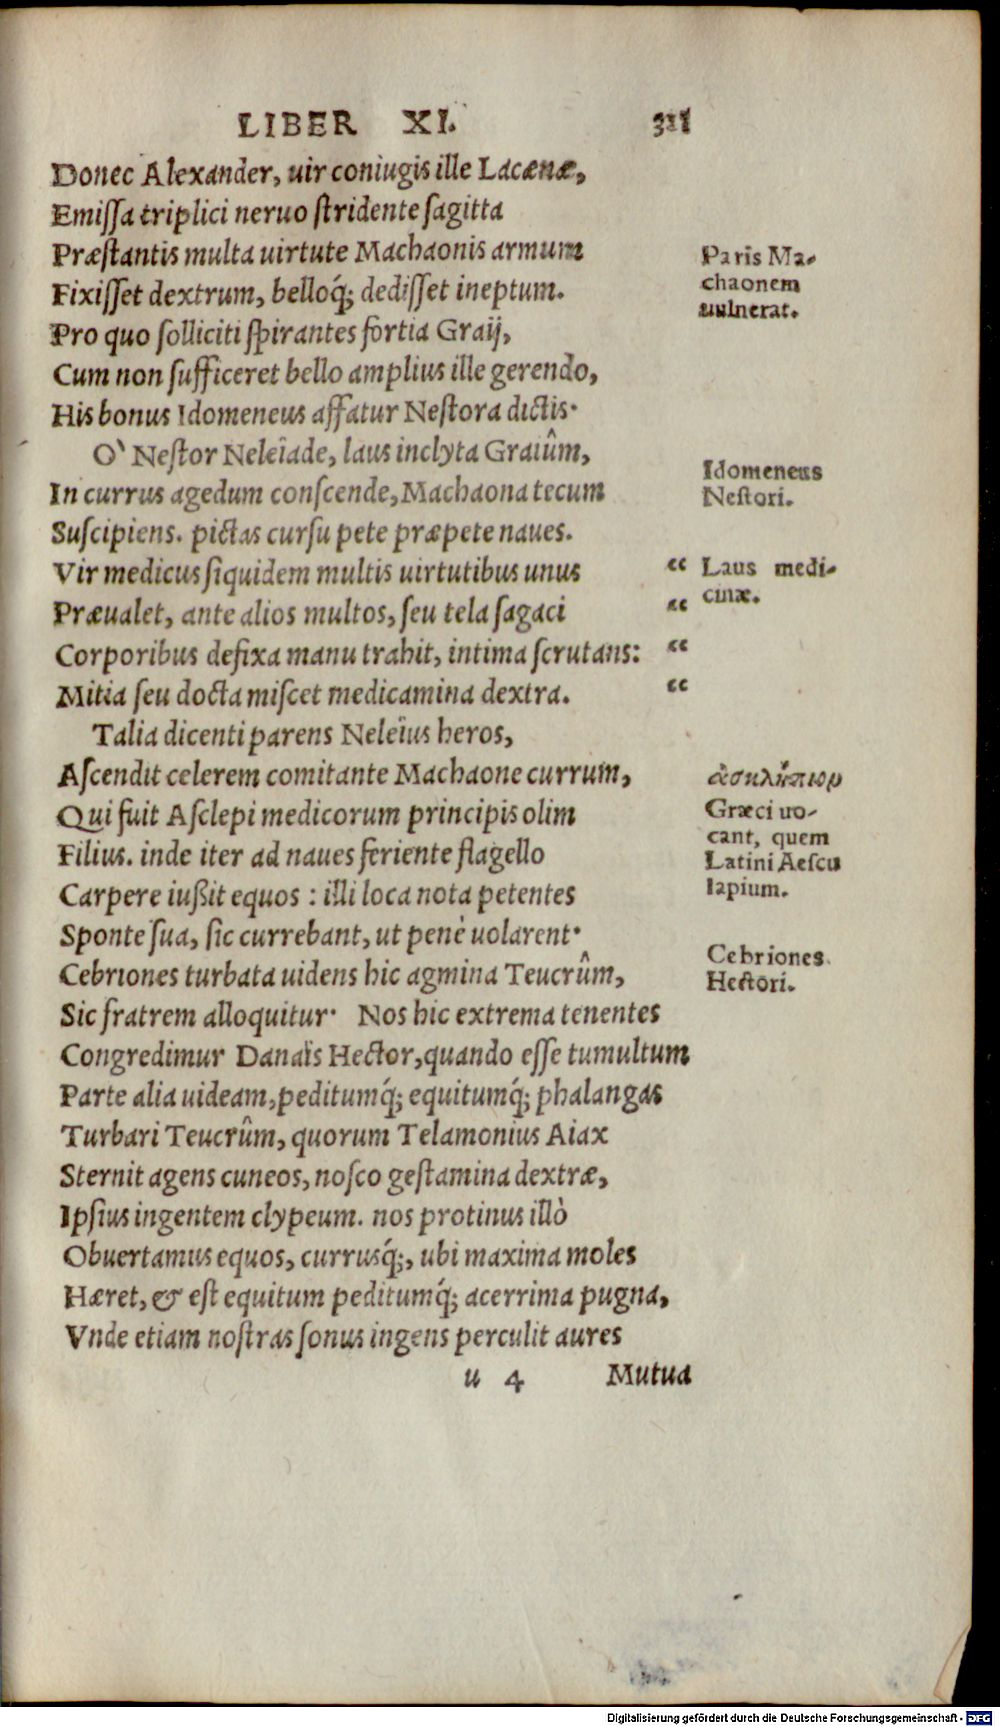 LIBER XI. 311
Donec Alexander, uir coniugis ille Lacænæ,
Emiſſa triplici neruo ſtridente ſagitta
Præſtantis multa uirtute Machaonis armum
Fixiſſet dextrum, belloq́; dediſſet ineptum.
Pro quo ſolliciti ſpirantes fortia Graij,
Cum non ſufficeret bello amplius ille gerendo,
His bonus Idomeneus affatur Neſtora dictis·
O` Neſtor Neleïade, laus inclyta Graiûm,
In currus agedum conſcende, Machaona tecum
Suſcipiens. pictas curſu pete præpete naues.
Vir medicus ſiquidem multis uirtutibus unus
Præualet, ante alios multos, ſeu tela ſagaci
Corporibus defixa manu trahit, intima ſcrutans:
Mitia ſeu docta miſcet medicamina dextra.
Talia dicenti parens Neleïus heros,
Aſcendit celerem comitante Machaone currum,
Qui fuit Aſclepi medicorum principis olim
Filius. inde iter ad naues feriente flagello
Carpere iußit equos : illi loca nota petentes
Sponte ſua, ſic currebant, ut penè uolarent·
Cebriones turbata uidens hic agmina Teucrûm,
Sic fratrem alloquitur· Nos hic extrema tenentes
Congredimur Danaïs Hector, quando eſſe tumultum
Parte alia uideam, peditumq́; equitumq́; phalangas
Turbari Teucrûm, quorum Telamonius Aiax
Sternit agens cuneos, noſco geſtamina dextræ,
Ipſius ingentem clypeum. nos protinus illò
Obuertamus equos, currusq́;, ubi maxima moles
Hæret, & eſt equitum peditumq́; acerrima pugna,
Vnde etiam noſtras ſonus ingens perculit aures
u 4 Mutua
Paris Ma-
chaonem
uulnerat.
Idomeneus
Neſtori.
“ Laus medi-
“ cinæ.
“
“
ἀσκλήπιορ
Græci uo-
cant, quem
Latini Aeſcu
lapium.
Cebriones
Hectori.
Digitalisierung gefördert durch die Deutsche Forschungsgemeinschaft - DFG